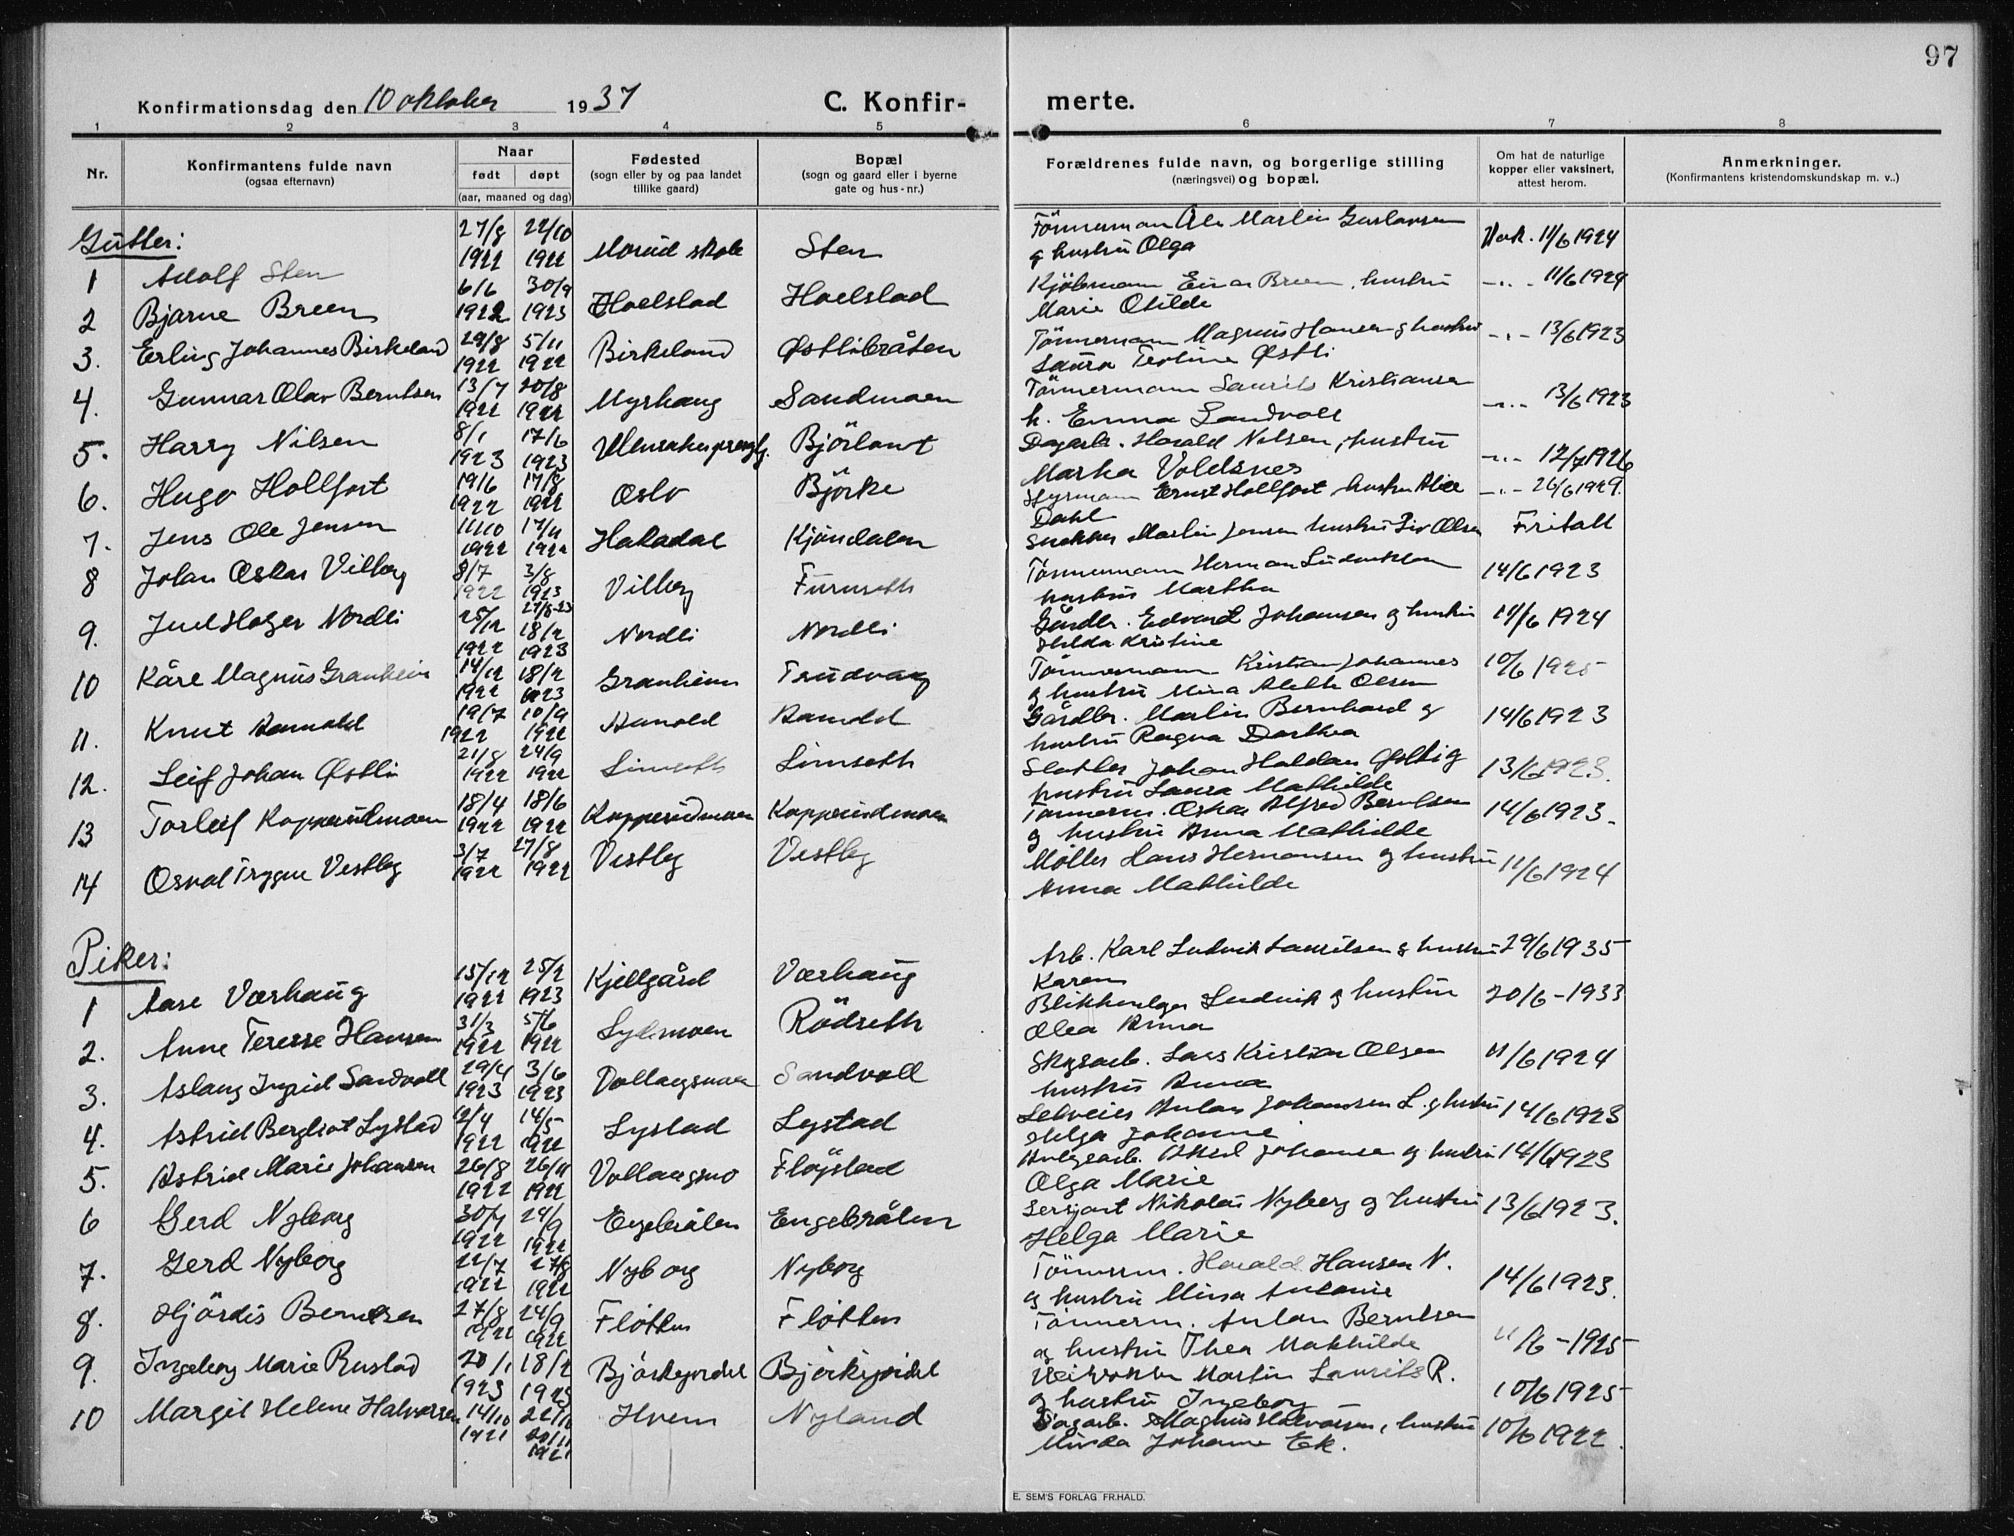 97
Konfirmationsdag den 10 oktober 1937 C. Konfir- merte.
1 2 3 4 5 6 7 8
Nr. Konfirmantens fulde navn (ogsaa efternavn) Naar født døpt (aar, maaned og dag) Fødested (sogn eller by og paa landet tillike gaard) Bopæl (sogn og gaard eller i byerne gate og hus-nr.) Forældrenes fulde navn, og borgerlige stilling (næringsvei) og bopæl. Om hat de naturlige kopper eller vaksinert, attest herom. Anmerkninger. (Konfirmantens kristendomskundskap m. v..)
Gutter:
1 Adolf Sten 27/8 1922 22/10 1922 Morud skole Sten Tömmerman Ole Martin Gustavsen
g hustru Olga Vak. 11/6 1924
2 Bjarne Breen 6/6 1922 30/9 1923 Hoelstad Hoelstad Kjöbmann Einar Breen, hustru
Marie Otilde -"- 11/6 1924
3. Erling Johannes Birkeland 29/8 1922 5/11 1922 Birkeland Østlibråten Tömmermann Magnus Hansen g hustru
Laura Teoline Østli -"- 13/6 1923
4. Gunnar Olav Berntsen 13/7 1922 20/8 1922 Myrhaug Sandmoen Tömmermann Laurits Kristiansen
h. Emma Sandvoll -"- 13/6 1923
5. Harry Nilsen 8/1 1923 17/6 1923 Björlant Dagarb. Harald Nilsen, hustru
Marka Voldsnes -"- 12/7 1926
6. Hugo Hollfort 19/6 1922 17/8 1922 Oslo Björke Ernst Hollfort hustru Alice
Dahl -"- 26/6 1929.
7. Jens Ole Jensen 11/10 1922 17/11 1922 Hakadal Kjöndalen Snekker Martin Jensen hustru Siv Olsen Fritatt
8 Johan Oskar Vilberg 8/7 1922 3/8 1923 Vilberg Furuseth Tömmermann Herman Ludvikson
hustru Martha 14/6 1923
9. Juel Holger Nordli 25/12 1922 27/8-23 18/2 1923 Nordli Nordli Gårdbr. Edvard Johansen og hustru
Hilda Kristine 14/6 1924
10 Kåre Magnus Granheim 14/12 1922 18/2 1923 Granheim Trudvang Tömmermann Kristian Johannes
g hustru Mina Alette Olsen 10/6 1925
11. Knut Aamold 19/7 1922 10/9 1922 Aamold Aamold Gårdbr. Martin Bernhard g
hustru Ragna Dorthea 14/6 1923
12. Leif Johan Østli 21/8 1922 24/9 1922 Limseth Limseth Slakter Johan Haldan Østli g
hustru Laura Mathilde 13/6 1923.
13 Torleif Kopperudmoen 18/4 1922 18/6 1922 Kopperudmoen Kopperudmoen Tömmerm. Oskar Alfred Berntsen
g hustru Anna Mathilde 14/6 1923.
14 Osval Trygve Vestby 3/7 1922 27/8 1922 Vestby Vestby Möller Hans Hermansen og hustru
Anna Mathilde 11/6 1924
Piker:
1 Aase Værhaug 15/12 1922 25/2 1923 Kjellgård Værhaug Arb. Karl Ludvik Lauritsen g hustru
Karen 29/6 1935
2. Anne Terese Hansen 31/3 1922 5/6 1922 Lydemoen Rödseth Ludvik g hustru
Olea Anna 20/6-1933
3. Aslaug Ingrid Sandvoll 29/4 1923 3/6 1923 Vollaugsmoen Sandvoll Skogsarb. Lars Kristian Olsen
hustru Anna 11/6 1924
4. Astrid Bergliot Lystad 2/4 1922 14/5 1922 Lystad Lystad Selveier Anton Johansen L. g hustru
Helga Johanne 14/6 1923
5. Astrid Marie Johansen 26/8 1922 26/11 1922 Vollaugsmo Fløjstad Anlegsarb. Aksel Johansen og hustru
Olga Marie 14/6 1923
6 Gerd Nyberg 30/7 1922 24/9 1922 Engebråten Engebråten Sersjant Nikolai Nyberg og hustru
Helga Marie 13/6 1923.
7. Gerd Nyborg 22/7 1922 27/8 1922 Nyborg Nyborg Tömmerm. Harald Hansen N.
og hustru Mina Antonie 14/6 1923.
8. Hjördis Berntsen 27/8 1922 24/9 1922 Fløtten Fløtten Tömmerm. Anton Berntsen
og hustru Thea Mathilde 11/6-1925
9. Ingeborg Marie Rustad 20/1 1923 18/2 1923 Björkejordet Björkejordet Martin Laurits R.
g hustru Ingeborg 10/6 1925
10 Margit Helene Halvorsen 14/10 1921 20/11 1921 Hvem Nyland Dagarb. Magnus Halvorsen, hustru
Minda Johanne Eek. 10/6 1922.
E. SEM'S FORLAG FR.HALD.